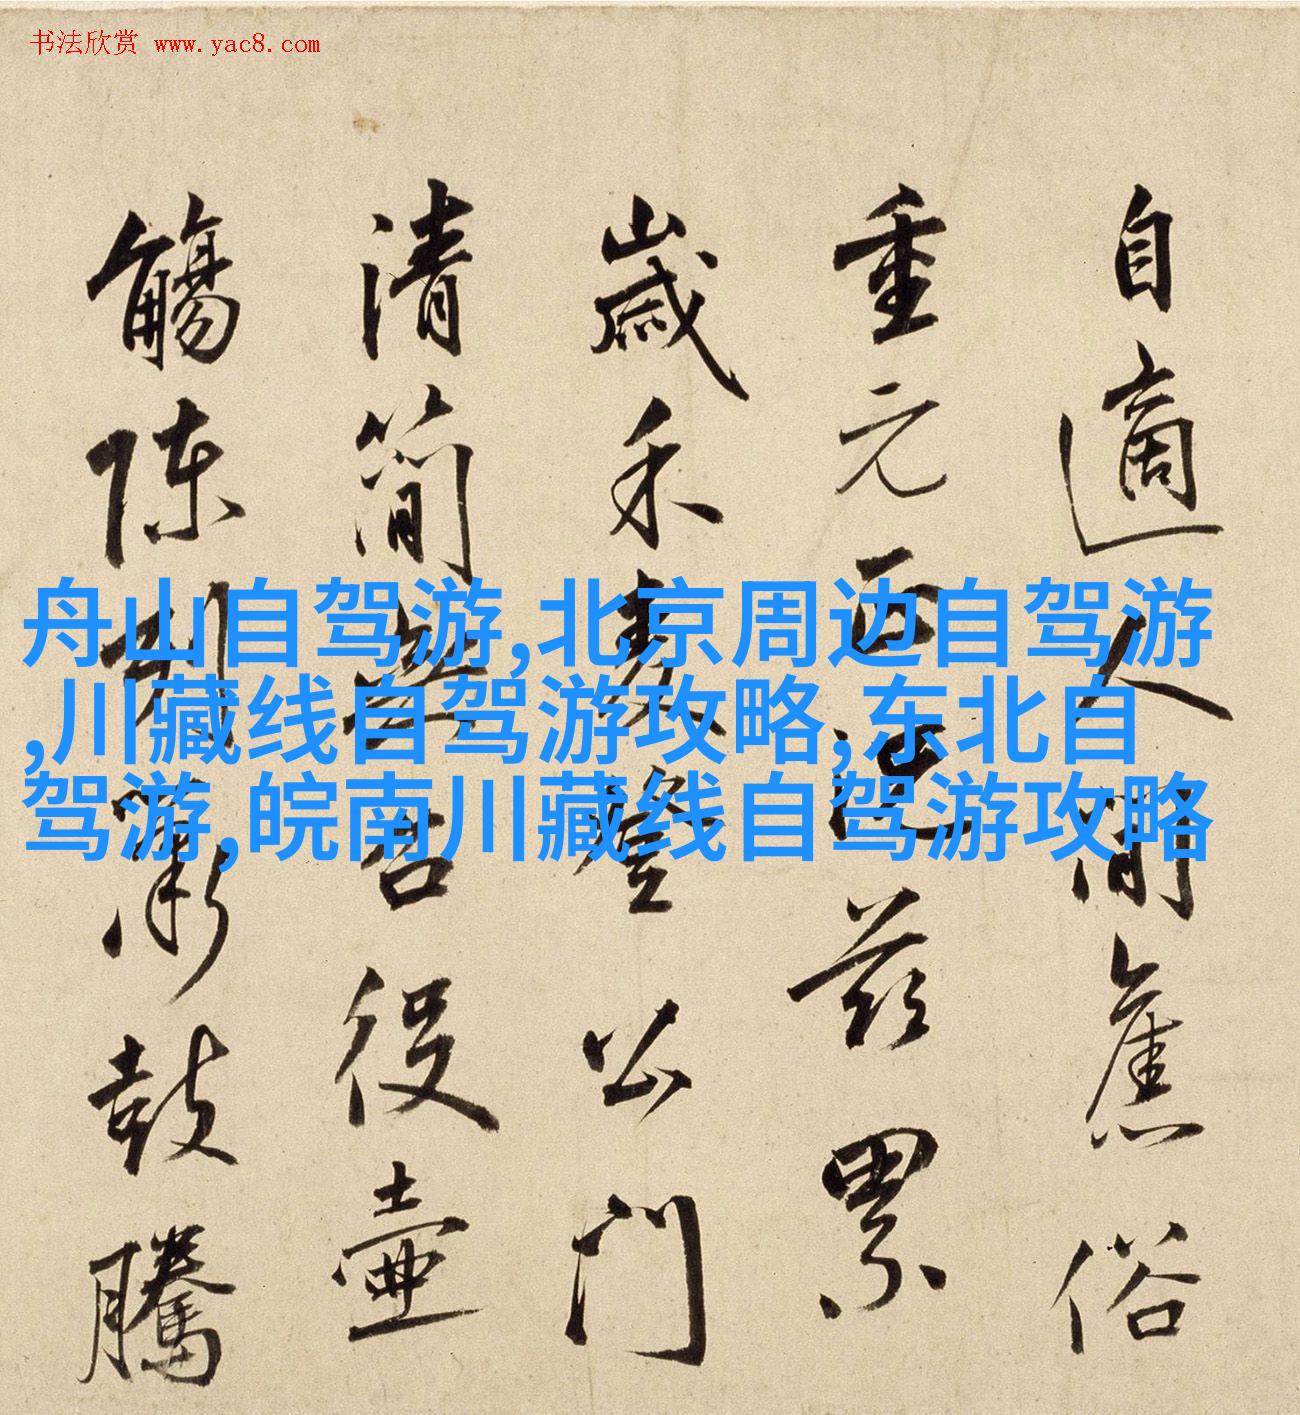 书法欣赏 www.yac8.com
舟山自驾游,北京周边自驾游
,川藏线自驾游攻略,东北自
驾游,皖南川藏线自驾游攻略
自適人間舊俗
重元正茲累
歲禾麥登公門
清簡無召役壺
觴陳列鼓騰